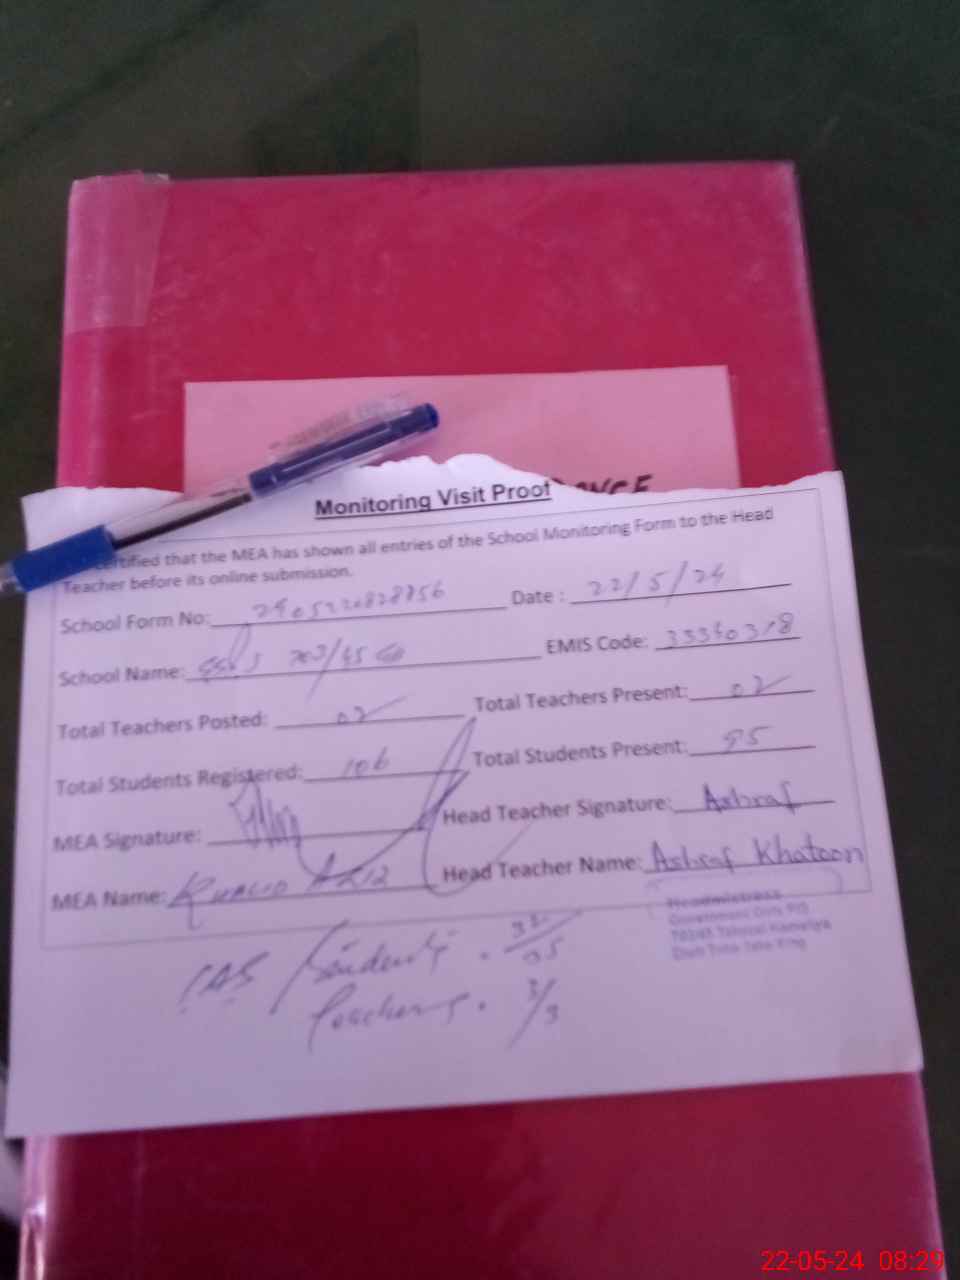 Monitoring Visit Proof
certified that the MEA has shown all entries of the School Monitoring Form to the Head
Teacher before its online submission.
School Form No: Date : 22/5/24
School Name: 703/45 GB EMIS Code: 33340318
Total Teachers Posted: 02 Total Teachers Present: 02
Total Students Registered: 106 Total Students Present: 95
MEA Signature: Head Teacher Signature: Ashraf
MEA Name: KHALID AZIZ Head Teacher Name: Ashraf Khatoon
Headmistress
Government Girls P/S
Tehsil Kamalia
Distt Toba Tek Singh
Students.
Teachers. 3/3
22-05-24 08:29